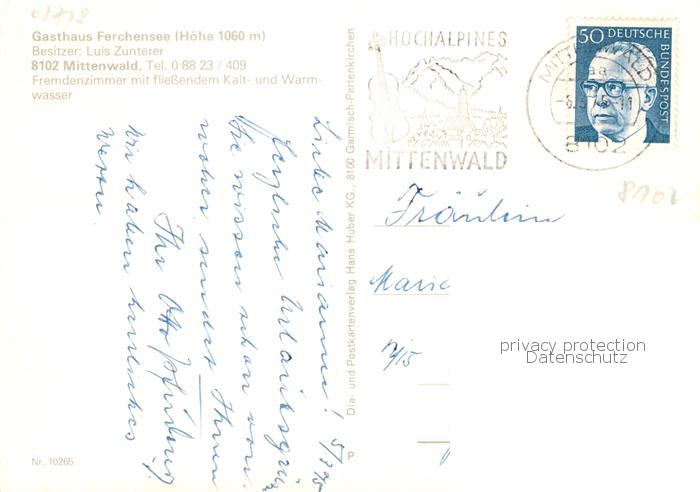 Gasthaus Ferchensee (Höhe 1060 m)
Besitzer: Luis Zunterer
8102 Mittenwald, Tel. 0 88 23 / 409
Fremdenzimmer mit fließendem Kalt- und Warm-
wasser
Liebe Marianne!
Herzliche Urlaubsgrüße
Sie wissen schon von
woher sendet Ihnen
Ihr Otto
Wir haben herrliches
Wetter.
Nr. 10265
Dia- und Postkartenverlag Hans Huber KG., 8100 Garmisch-Partenkirchen
P
HOCHALPINES
MITTENWALD
MITTENWALD
8102
50 DEUTSCHE
BUNDESPOST
8102
Fräulein
privacy protection
Datenschutz